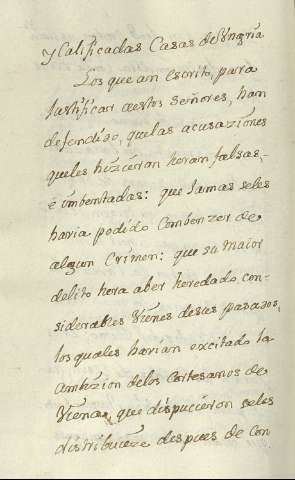 y Calificadas Casas de Vngría
Los que an escrito, para
Justificar aestos Señores, han
defendido, quelas acusaziones
queles hizieran heram falsas,
e imbentadas: que Jamas seles
haria podido Combenzer de
algun Crimen: que su maior
delito hera aber heredado con-
siderables Vienes desus pasados,
los quales harian excitado la
ambizion delos Cortesanos de
Viena, que dispucieron seles
distribuieze despues de con